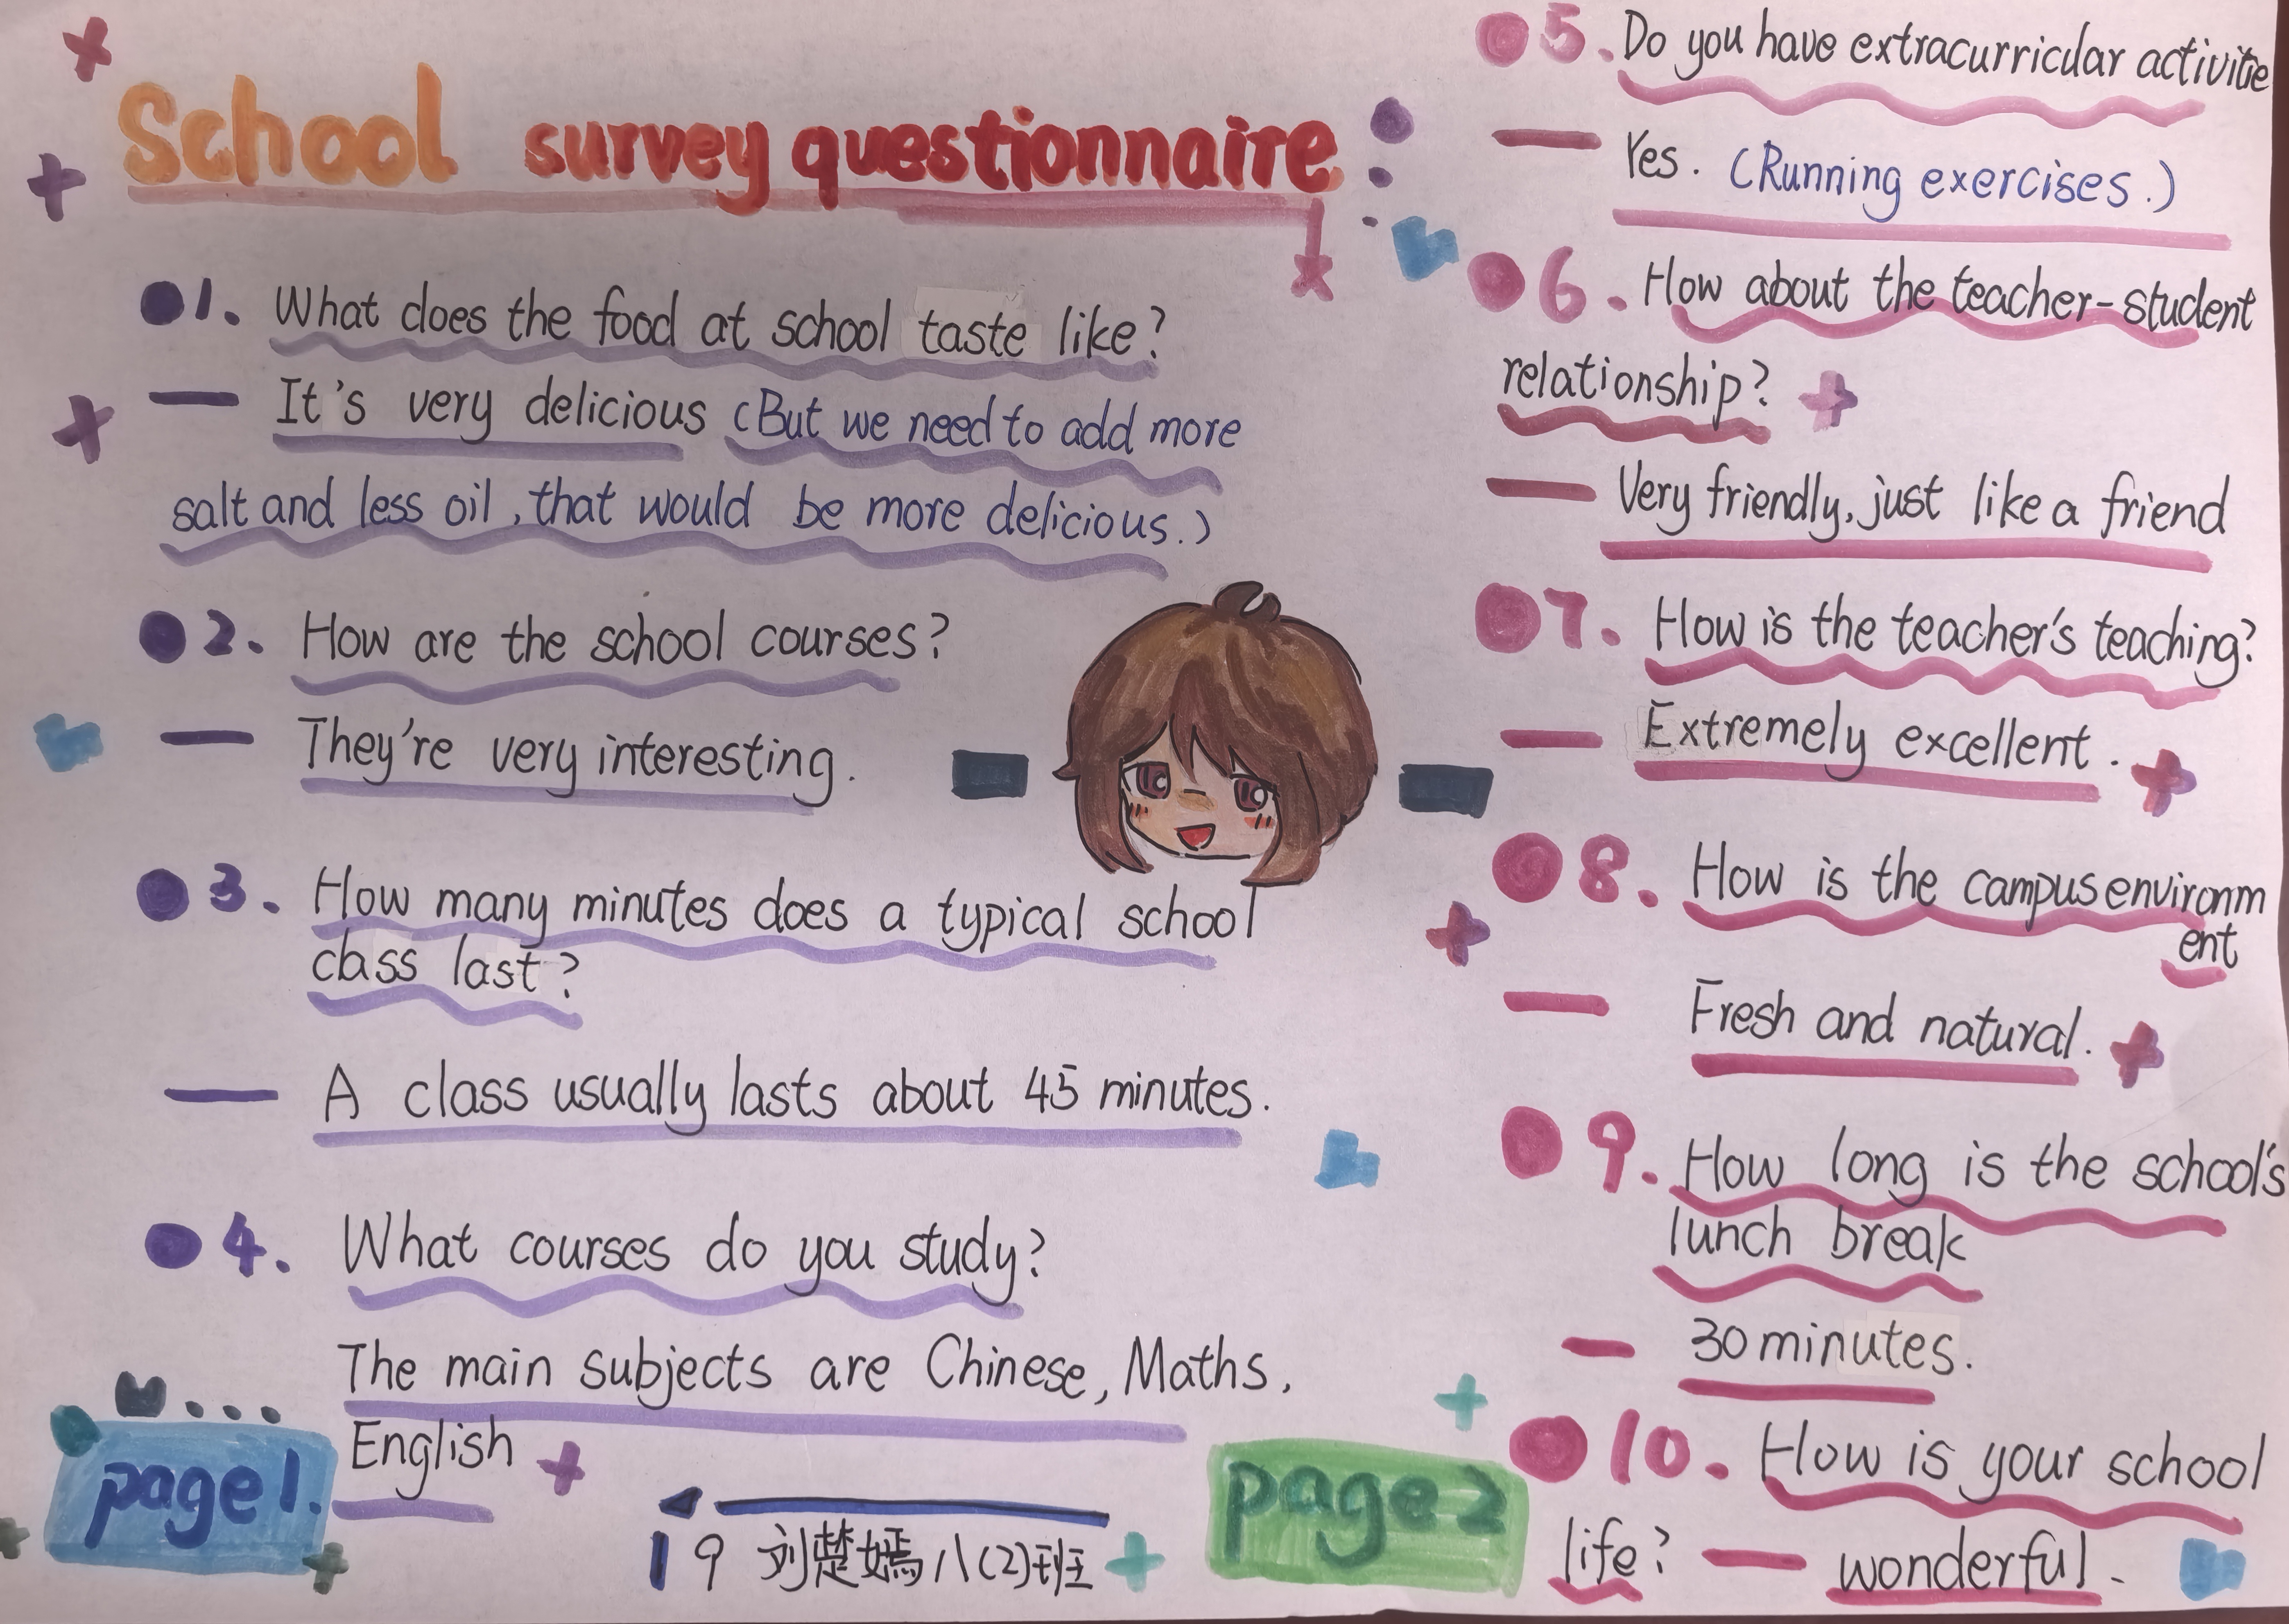 School survey questionnaire
1. What does the food at school taste like?
— It's very delicious (But we need to add more
salt and less oil, that would be more delicious.)
2. How are the school courses?
— They're very interesting.
3. How many minutes does a typical school
class last?
— A class usually lasts about 45 minutes.
4. What courses do you study?
The main subjects are Chinese, Maths,
English
page 1.
19 刘楚嫣 八(2)班
page 2
5. Do you have extracurricular activitie
— Yes. (Running exercises.)
6. How about the teacher-student
relationship?
— Very friendly, just like a friend
7. How is the teacher's teaching?
— Extremely excellent.
8. How is the campus environm
ent
— Fresh and natural.
9. How long is the school's
lunch break
— 30 minutes.
10. How is your school
life? — wonderful.